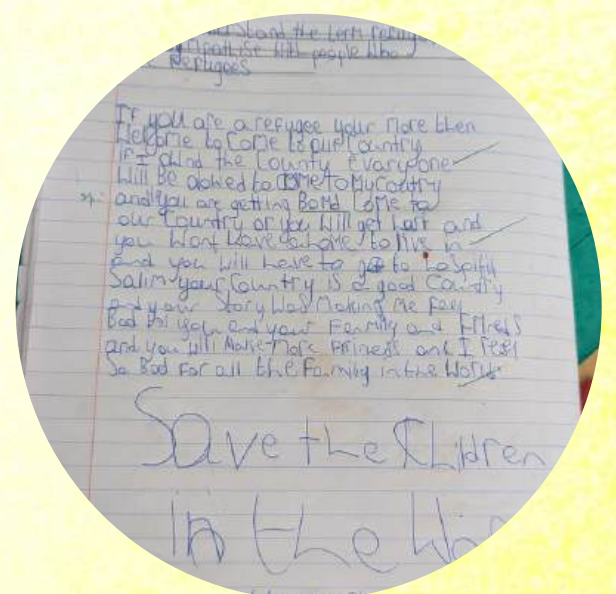 stand the term refugee
empathise with people who
Refugees
If you are a refugee your More then
Welcome to Come to our Country
if I ownd the County evaryone
Will Be alowed to COME to My Coutry
sp.
and you are getting Bomd Come to
our Country or you will get hurt and
you Wont have a home to live in
and you will have to go to hospitil
Salim your Country is a good Country
and your Story Was Making Me Feel
Bad for you and your Familly and Frineds
and you will Make More Frineds and I feel
So Bad For all the Familly in the World
Save the Children
in the Wor